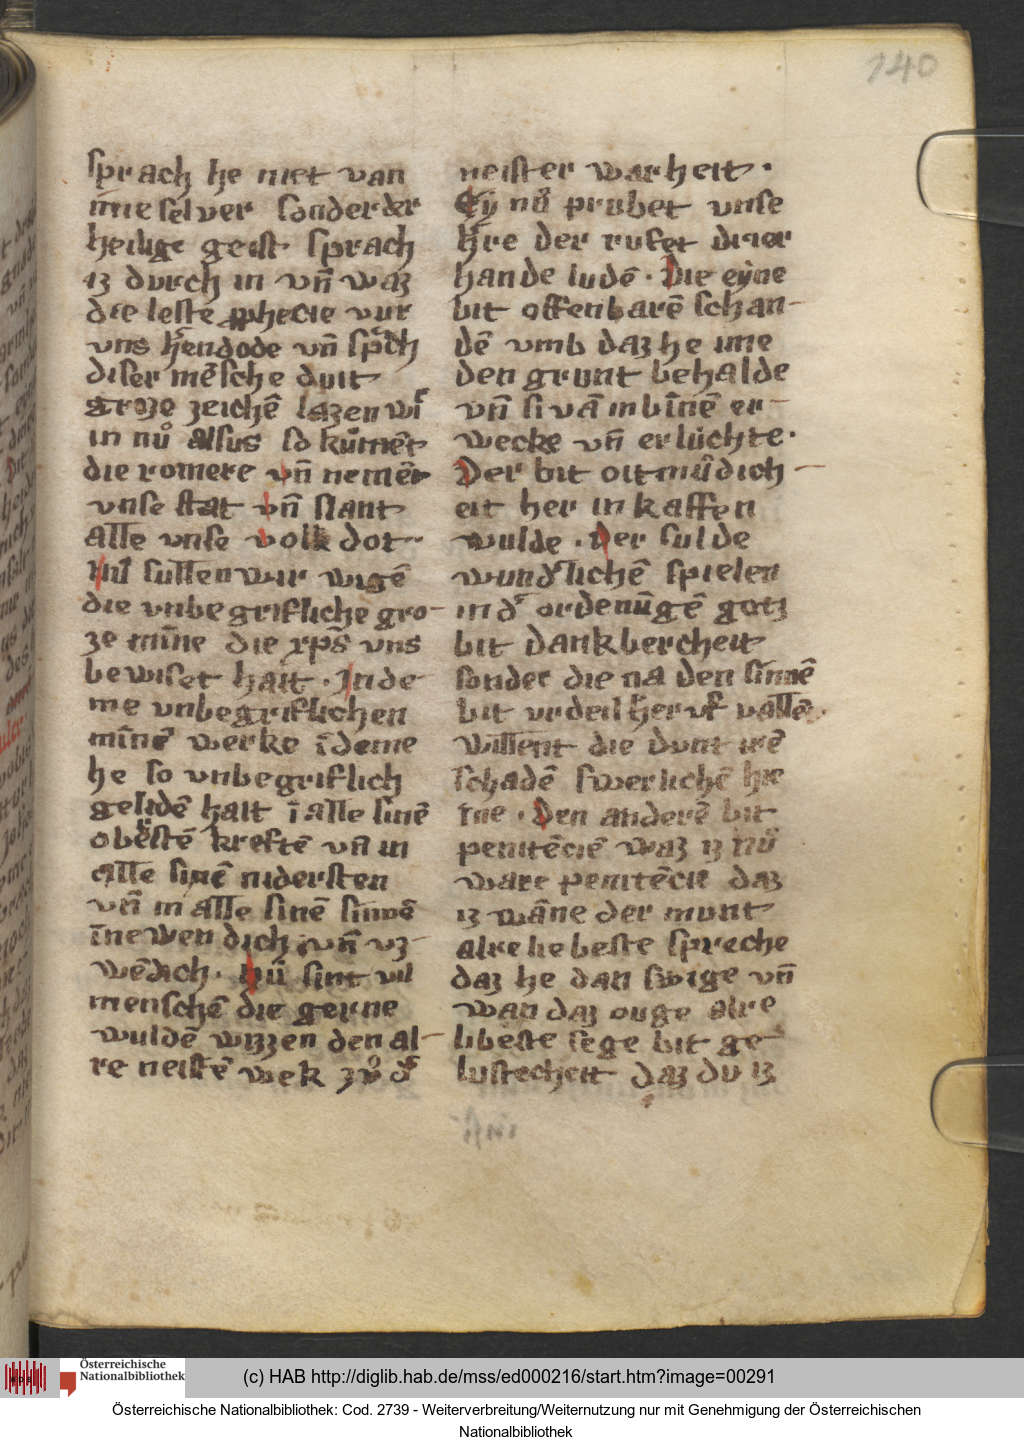 140
sprach he niet van
ime selver sonder der
heilige geist sprach
iz durch in vn̄ waz
die leste ꝓphecie vur
vns hͤrendode vn̄ sprͣch
diser mēsche duit
groze zeichē lazen wir
in nuͦ alsus so kūmēt
die romere vn̄ nemēt
vnse stat vn̄ slant
alle vnse volk dot·
Nu sullen wir wigē
die vnbegrifliche gro-
ze mīne die xp̄s vns
bewiset hait · In de
me vnbegriflichen
mīnē werke ī deme
he so vnbegriflich
gelidē hait ī alle sinē
oberstē kreftē vn̄ in
alle sinē nidersten
vn̄ in alle sinē sinnē
īnewendich vn̄ vz-
wēdich · Nu sint vil
menschē die gerne
wuldē wizzen den al-
re neistē wek zuͦ dͬ
neister warheit ·
Ey nuͦ prubet vnse
hͤre der rufet drier
hande ludē · Die eyne
bit offenbarē schan-
dē vmb daz he ime
den grunt behalde
vn̄ si vā inbīnē er-
wecke vn̄ erluchte·
Der bit oitmudich-
eit her in kaffen
wulde · Der sulde
wundͬlichē spielen
in dͬ ordenūgē gotz
bit dankbercheit
sonder die na den sinnē
bit urdeil her uf vallē
willent die dunt irē
schadē swerlichē hie
ine · Den anderē bit
penitēciē waz iz nu
ware penitēcie daz
iz wāne der munt
alre liebeste spreche
daz he dan swige vn̄
wan daz ouge alre
libeste sege bit ge-
lustecheit daz du iz
Österreichische
Nationalbibliothek
(c) HAB http://diglib.hab.de/mss/ed000216/start.htm?image=00291
Österreichische Nationalbibliothek: Cod. 2739 - Weiterverbreitung/Weiternutzung nur mit Genehmigung der Österreichischen
Nationalbibliothek